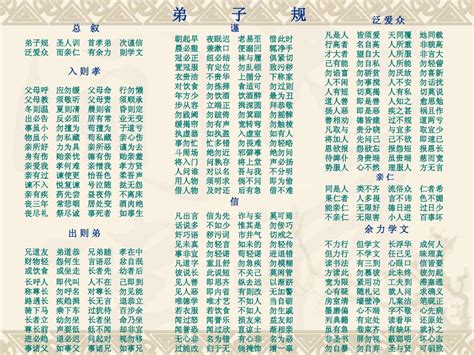 弟子规
总叙
弟子规 圣人训 首孝弟 次谨信
泛爱众 而亲仁 有余力 则学文
入则孝
父母呼 应勿缓 父母命 行勿懒
父母教 须敬听 父母责 须顺承
冬则温 夏则凊 晨则省 昏则定
出必告 反必面 居有常 业无变
事虽小 勿擅为 苟擅为 子道亏
物虽小 勿私藏 苟私藏 亲心伤
亲所好 力为具 亲所恶 谨为去
身有伤 贻亲忧 德有伤 贻亲羞
亲爱我 孝何难 亲憎我 孝方贤
亲有过 谏使更 怡吾色 柔吾声
谏不入 悦复谏 号泣随 挞无怨
亲有疾 药先尝 昼夜侍 不离床
丧三年 常悲咽 居处变 酒肉绝
丧尽礼 祭尽诚 事死者 如事生
出则弟
兄道友 弟道恭 兄弟睦 孝在中
财物轻 怨何生 言语忍 忿自泯
或饮食 或坐走 长者先 幼者后
长呼人 即代叫 人不在 己即到
称尊长 勿呼名 对尊长 勿见能
路遇长 疾趋揖 长无言 退恭立
骑下马 乘下车 过犹待 百步余
长者立 幼勿坐 长者坐 命乃坐
尊长前 声要低 低不闻 却非宜
进必趋 退必迟 问起对 视勿移
事诸父 如事父 事诸兄 如事兄
谨
朝起早 夜眠迟 老易至 惜此时
晨必盥 兼漱口 便溺回 辄净手
冠必正 纽必结 袜与履 俱紧切
置冠服 有定位 勿乱顿 致污秽
衣贵洁 不贵华 上循分 下称家
对饮食 勿拣择 食适可 勿过则
年方少 勿饮酒 饮酒醉 最为丑
步从容 立端正 揖深圆 拜恭敬
勿践阈 勿跛倚 勿箕踞 勿摇髀
缓揭帘 勿有声 宽转弯 勿触棱
执虚器 如执盈 入虚室 如有人
事勿忙 忙多错 勿畏难 勿轻略
斗闹场 绝勿近 邪僻事 绝勿问
将入门 问孰存 将上堂 声必扬
人问谁 对以名 吾与我 不分明
用人物 须明求 倘不问 即为偷
借人物 及时还 后有急 借不难
信
凡出言 信为先 诈与妄 奚可焉
话说多 不如少 惟其是 勿佞巧
奸巧语 秽污词 市井气 切戒之
见未真 勿轻言 知未的 勿轻传
事非宜 勿轻诺 苟轻诺 进退错
凡道字 重且舒 勿急疾 勿模糊
彼说长 此说短 不关己 莫闲管
见人善 即思齐 纵去远 以渐跻
见人恶 即内省 有则改 无加警
唯德学 唯才艺 不如人 当自砺
若衣服 若饮食 不如人 勿生戚
闻过怒 闻誉乐 损友来 益友却
闻誉恐 闻过欣 直谅士 渐相亲
无心非 名为错 有心非 名为恶
过能改 归于无 倘掩饰 增一辜
泛爱众
凡是人 皆须爱 天同覆 地同载
行高者 名自高 人所重 非貌高
才大者 望自大 人所服 非言大
己有能 勿自私 人所能 勿轻訾
勿谄富 勿骄贫 勿厌故 勿喜新
人不闲 勿事搅 人不安 勿话扰
人有短 切莫揭 人有私 切莫说
道人善 即是善 人知之 愈思勉
扬人恶 即是恶 疾之甚 祸且作
善相劝 德皆建 过不规 道两亏
凡取与 贵分晓 与宜多 取宜少
将加人 先问己 己不欲 即速已
恩欲报 怨欲忘 报怨短 报恩长
待婢仆 身贵端 虽贵端 慈而宽
势服人 心不然 理服人 方无言
亲仁
同是人 类不齐 流俗众 仁者希
果仁者 人多畏 言不讳 色不媚
能亲仁 无限好 德日进 过日少
不亲仁 无限害 小人进 百事坏
余力学文
不力行 但学文 长浮华 成何人
但力行 不学文 任己见 昧理真
读书法 有三到 心眼口 信皆要
方读此 勿慕彼 此未终 彼勿起
宽为限 紧用功 工夫到 滞塞通
心有疑 随札记 就人问 求确义
房室清 墙壁净 几案洁 笔砚正
墨磨偏 心不端 字不敬 心先病
列典籍 有定处 读看毕 还原处
虽有急 卷束齐 有缺坏 就补之
非圣书 屏勿视 蔽聪明 坏心志
勿自暴 勿自弃 圣与贤 可驯致